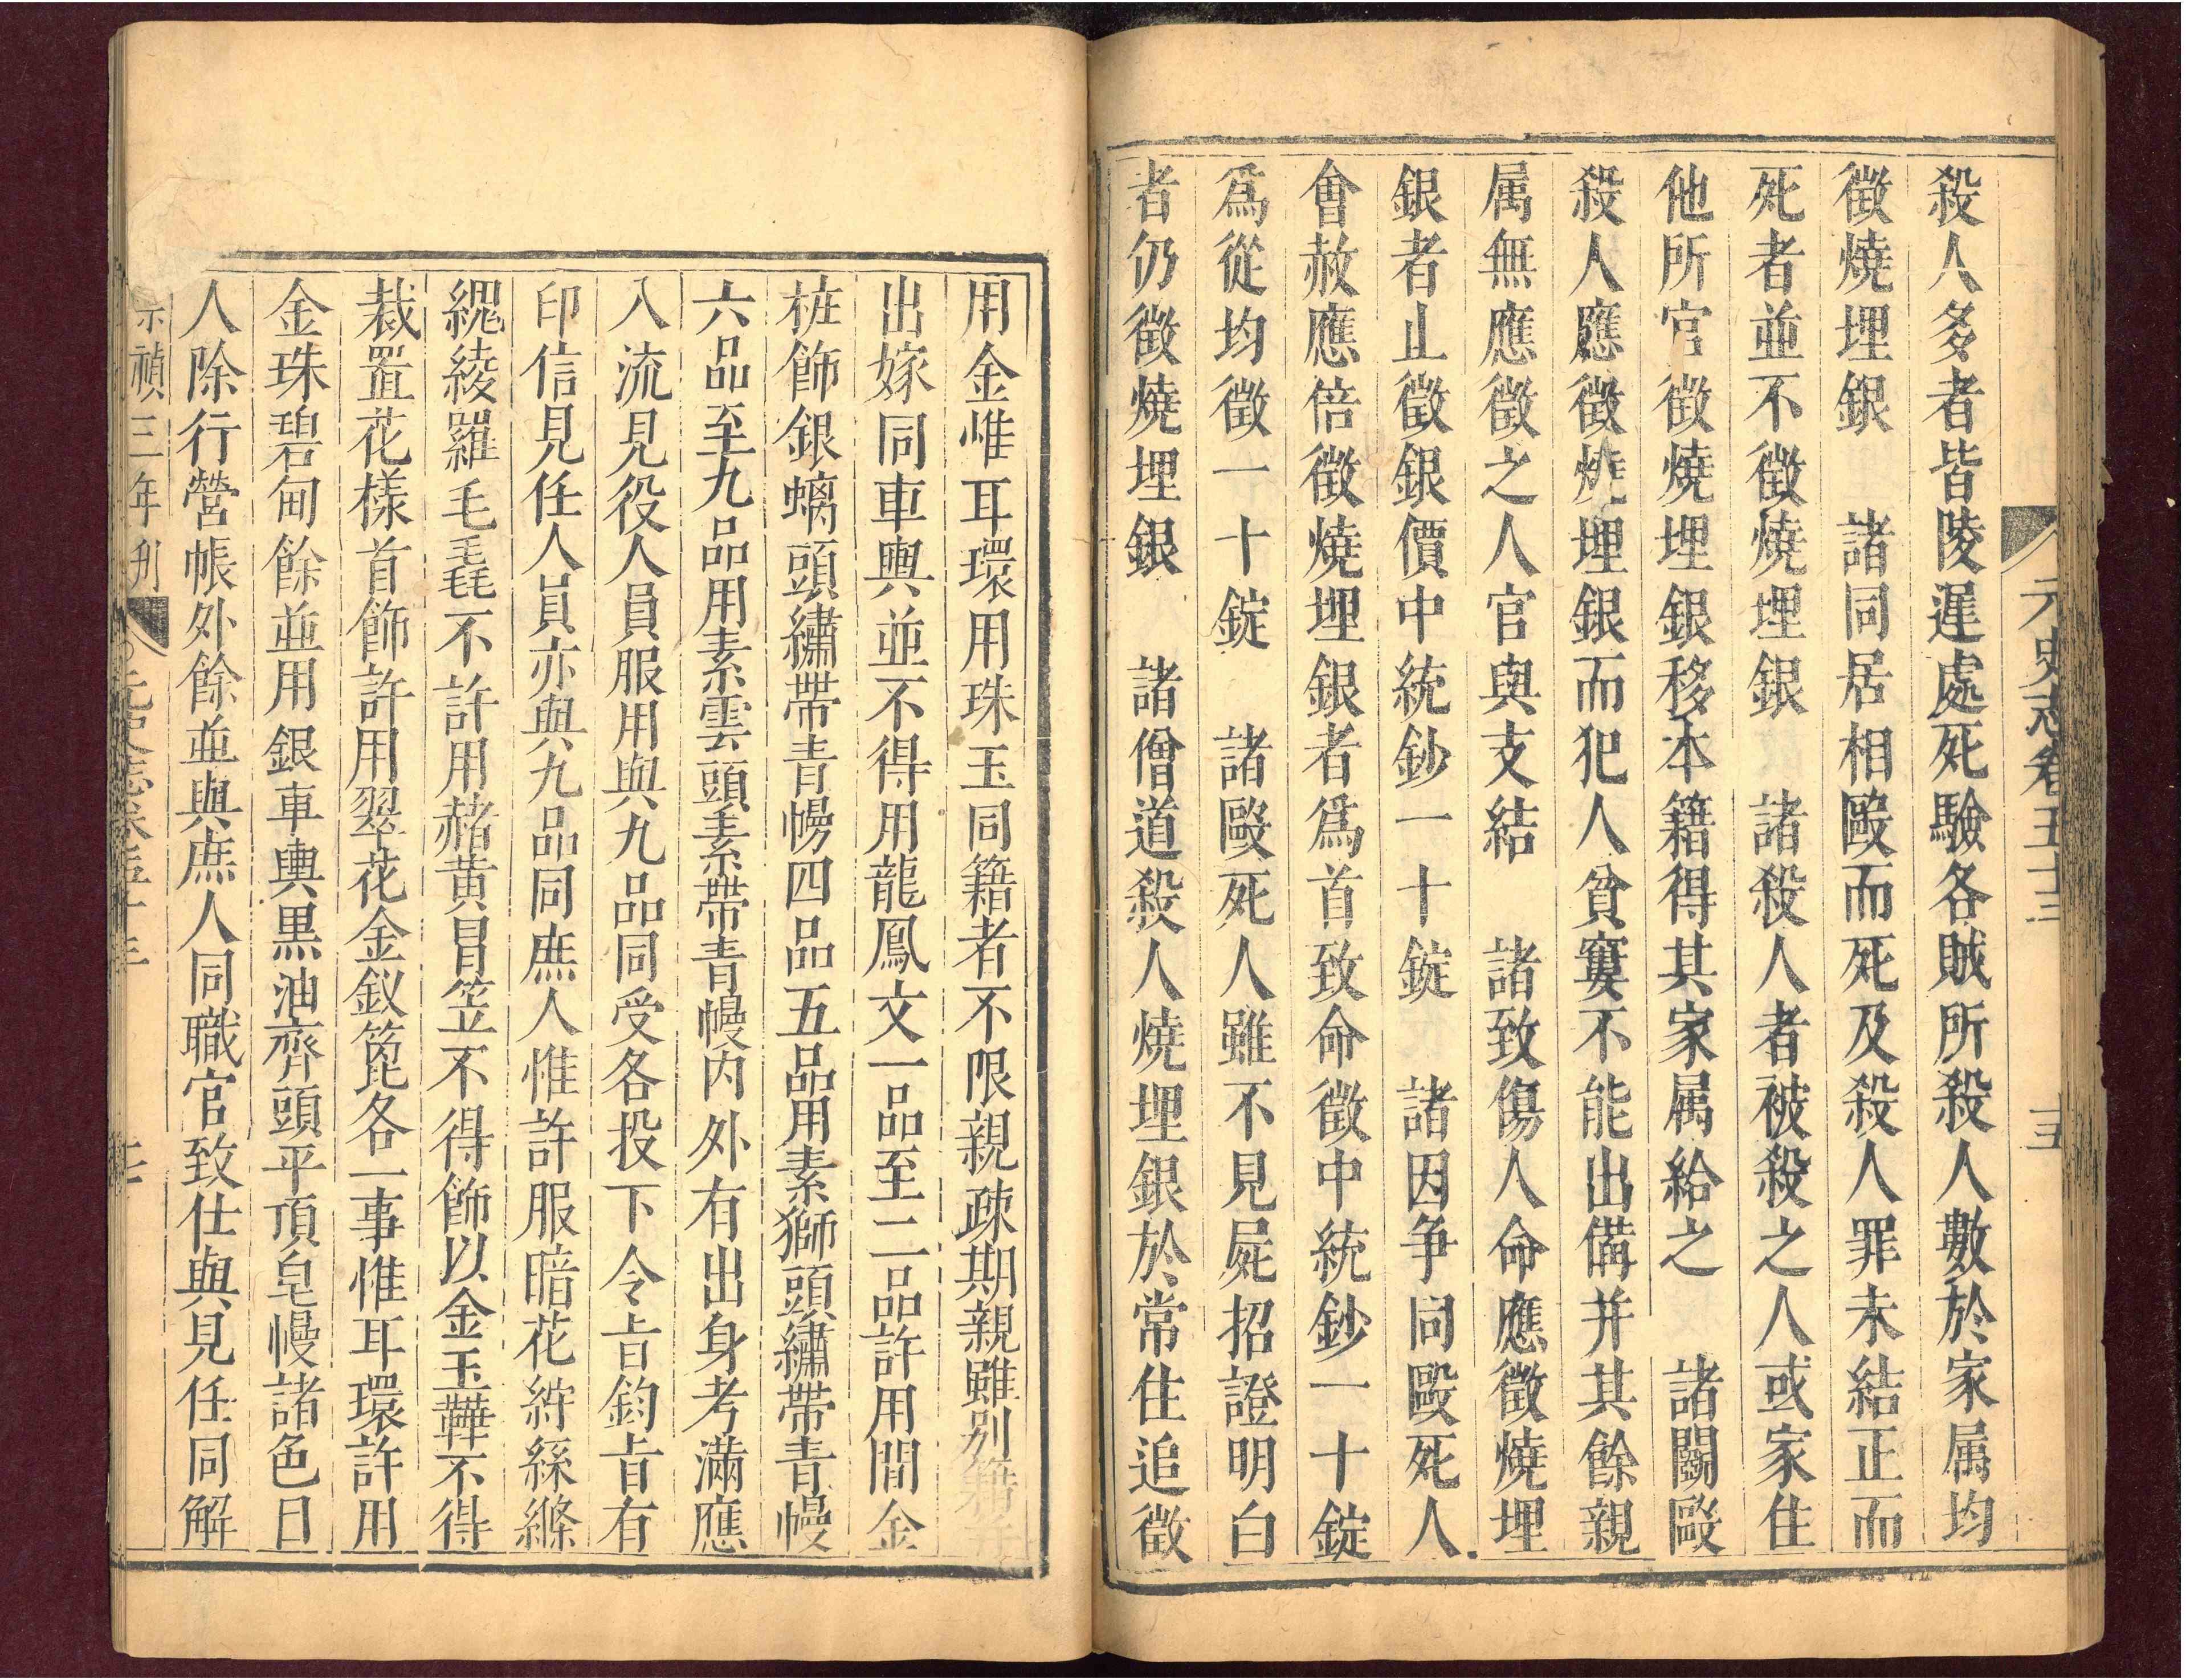 元史志卷五十三
十五
殺人多者皆陵遲處死驗各賊所殺人數於家属均
徵燒埋銀　諸同居相毆而死及殺人罪未結正而
死者並不徵燒埋銀　諸殺人者被殺之人或家住
他所官徵燒埋銀移本籍得其家属給之　諸鬭毆
殺人應徵燒埋銀而犯人貧窶不能出備并其餘親
属無應徵之人官與支結　諸致傷人命應徵燒埋
銀者止徵銀價中統鈔一十錠　諸因争同毆死人
會赦應倍徵燒埋銀者爲首致命徵中統鈔一十錠
爲從均徵一十錠　諸毆死人雖不見屍招證明白
者仍徵燒埋銀　諸僧道殺人燒埋銀於常住追徵
用金惟耳環用珠玉同籍者不限親疎期親雖别籍
出嫁同車輿並不得用龍鳳文一品至二品許用間金
粧飾銀螭頭繡帶青幔四品五品用素獅頭繡帶青幔
六品至九品用素雲頭素帶青幔内外有出身考滿應
入流見役人員服用與九品同受各投下令旨鈞旨有
印信見任人員亦與九品同庶人惟許服暗花紵絲絲
綾羅毛毳不許用赭黄冒笠不得飾以金玉鞾不得
裁置花樣首飾許用翠花金釵篦各一事惟耳環許用
金珠碧甸餘並用銀車輿黒油齊頭平頂皂幔諸色目
人除行營帳外餘並與庶人同職官致仕與見任同解
禎三年刋
元史志卷